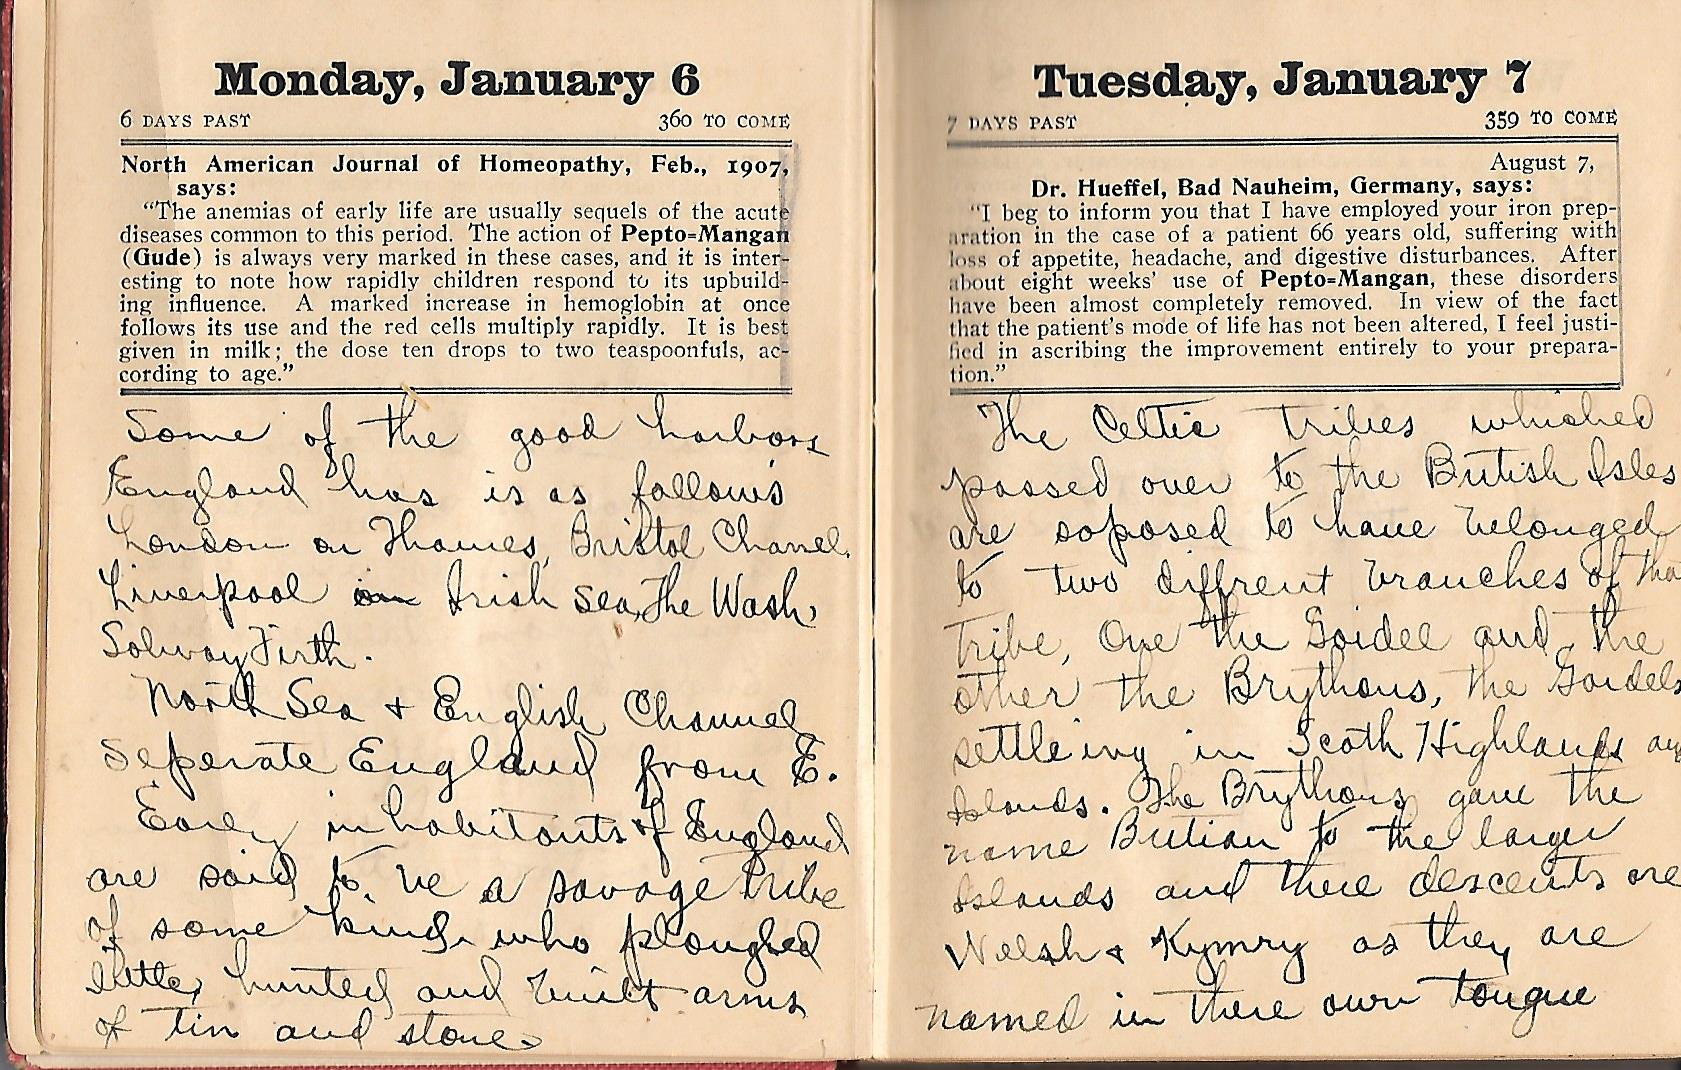 Monday, January 6
6 DAYS PAST 360 TO COME
North American Journal of Homeopathy, Feb., 1907,
says:
"The anemias of early life are usually sequels of the acute
diseases common to this period. The action of Pepto=Mangan
(Gude) is always very marked in these cases, and it is inter-
esting to note how rapidly children respond to its upbuild-
ing influence. A marked increase in hemoglobin at once
follows its use and the red cells multiply rapidly. It is best
given in milk; the dose ten drops to two teaspoonfuls, ac-
cording to age."
Some of the good harbors
England has is as follows
London on Thames, Bristol Chanel.
Liverpool on Irish Sea, The Wash,
Solway Firth.
North Sea & English Channel
seperate England from E.
Early inhabitants of England
are said to be a savage tribe
of some kind, who ploughed
little, hunted and built arms
of tin and stone.
Tuesday, January 7
7 DAYS PAST 359 TO COME
August 7,
Dr. Hueffel, Bad Nauheim, Germany, says:
"I beg to inform you that I have employed your iron prep-
aration in the case of a patient 66 years old, suffering with
loss of appetite, headache, and digestive disturbances. After
about eight weeks' use of Pepto=Mangan, these disorders
have been almost completely removed. In view of the fact
that the patient's mode of life has not been altered, I feel justi-
fied in ascribing the improvement entirely to your prepara-
tion."
The Celtic tribes whiched
passed over to the British Isles
are soposed to have belonged
to two diffrent branches of tha
tribe, One the Goidel and the
other the Brythons, the Goidels
settleing in Scoth Highlands an
Islands. The Brythons gave the
name Britian to the larger
Islands and there descents are
Welsh & Kymry as they are
named in there own tongue